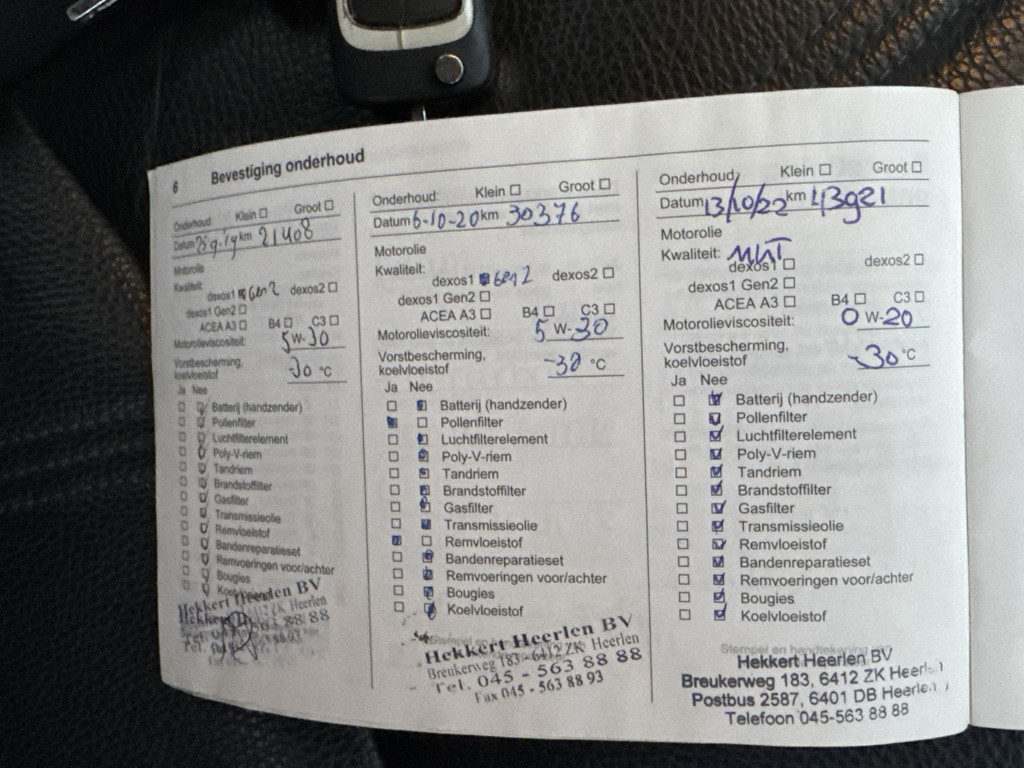 6 Bevestiging onderhoud
Onderhoud: Klein Groot
Datum km 21408
Motorolie
Kwaliteit:
dexos1 Gen2 dexos2
dexos1 Gen2
ACEA A3 B4 C3
Motorolieviscositeit: 5 W-30
Vorstbescherming,
koelvloeistof -30 °C
Ja Nee
Batterij (handzender)
Pollenfilter
Luchtfilterelement
Poly-V-riem
Tandriem
Brandstoffilter
Gasfilter
Transmissieolie
Remvloeistof
Bandenreparatieset
Remvoeringen voor/achter
Bougies
Hekkert Heerlen BV
6412 ZK Heerlen
Onderhoud: Klein Groot
Datum 6-10-20 km 30376
Motorolie
Kwaliteit:
dexos1 Gen2 dexos2
dexos1 Gen2
ACEA A3 B4 C3
Motorolieviscositeit: 5 W-30
Vorstbescherming,
koelvloeistof -38 °C
Ja Nee
Batterij (handzender)
Pollenfilter
Luchtfilterelement
Poly-V-riem
Tandriem
Brandstoffilter
Gasfilter
Transmissieolie
Remvloeistof
Bandenreparatieset
Remvoeringen voor/achter
Bougies
Koelvloeistof
Hekkert Heerlen BV
Breukerweg 183 - 6412 ZK Heerlen
Tel. 045 - 563 88 88
Fax 045 - 563 88 93
Onderhoud, Klein Groot
Datum 13/10/22 km 43921
Motorolie
Kwaliteit:
dexos1 dexos2
dexos1 Gen2
ACEA A3 B4 C3
Motorolieviscositeit: 0 W-20
Vorstbescherming,
koelvloeistof -30 °C
Ja Nee
Batterij (handzender)
Pollenfilter
Luchtfilterelement
Poly-V-riem
Tandriem
Brandstoffilter
Gasfilter
Transmissieolie
Remvloeistof
Bandenreparatieset
Remvoeringen voor/achter
Bougies
Koelvloeistof
Stempel en handtekening
Hekkert Heerlen BV
Breukerweg 183, 6412 ZK Heerlen
Postbus 2587, 6401 DB Heerlen
Telefoon 045-563 88 88